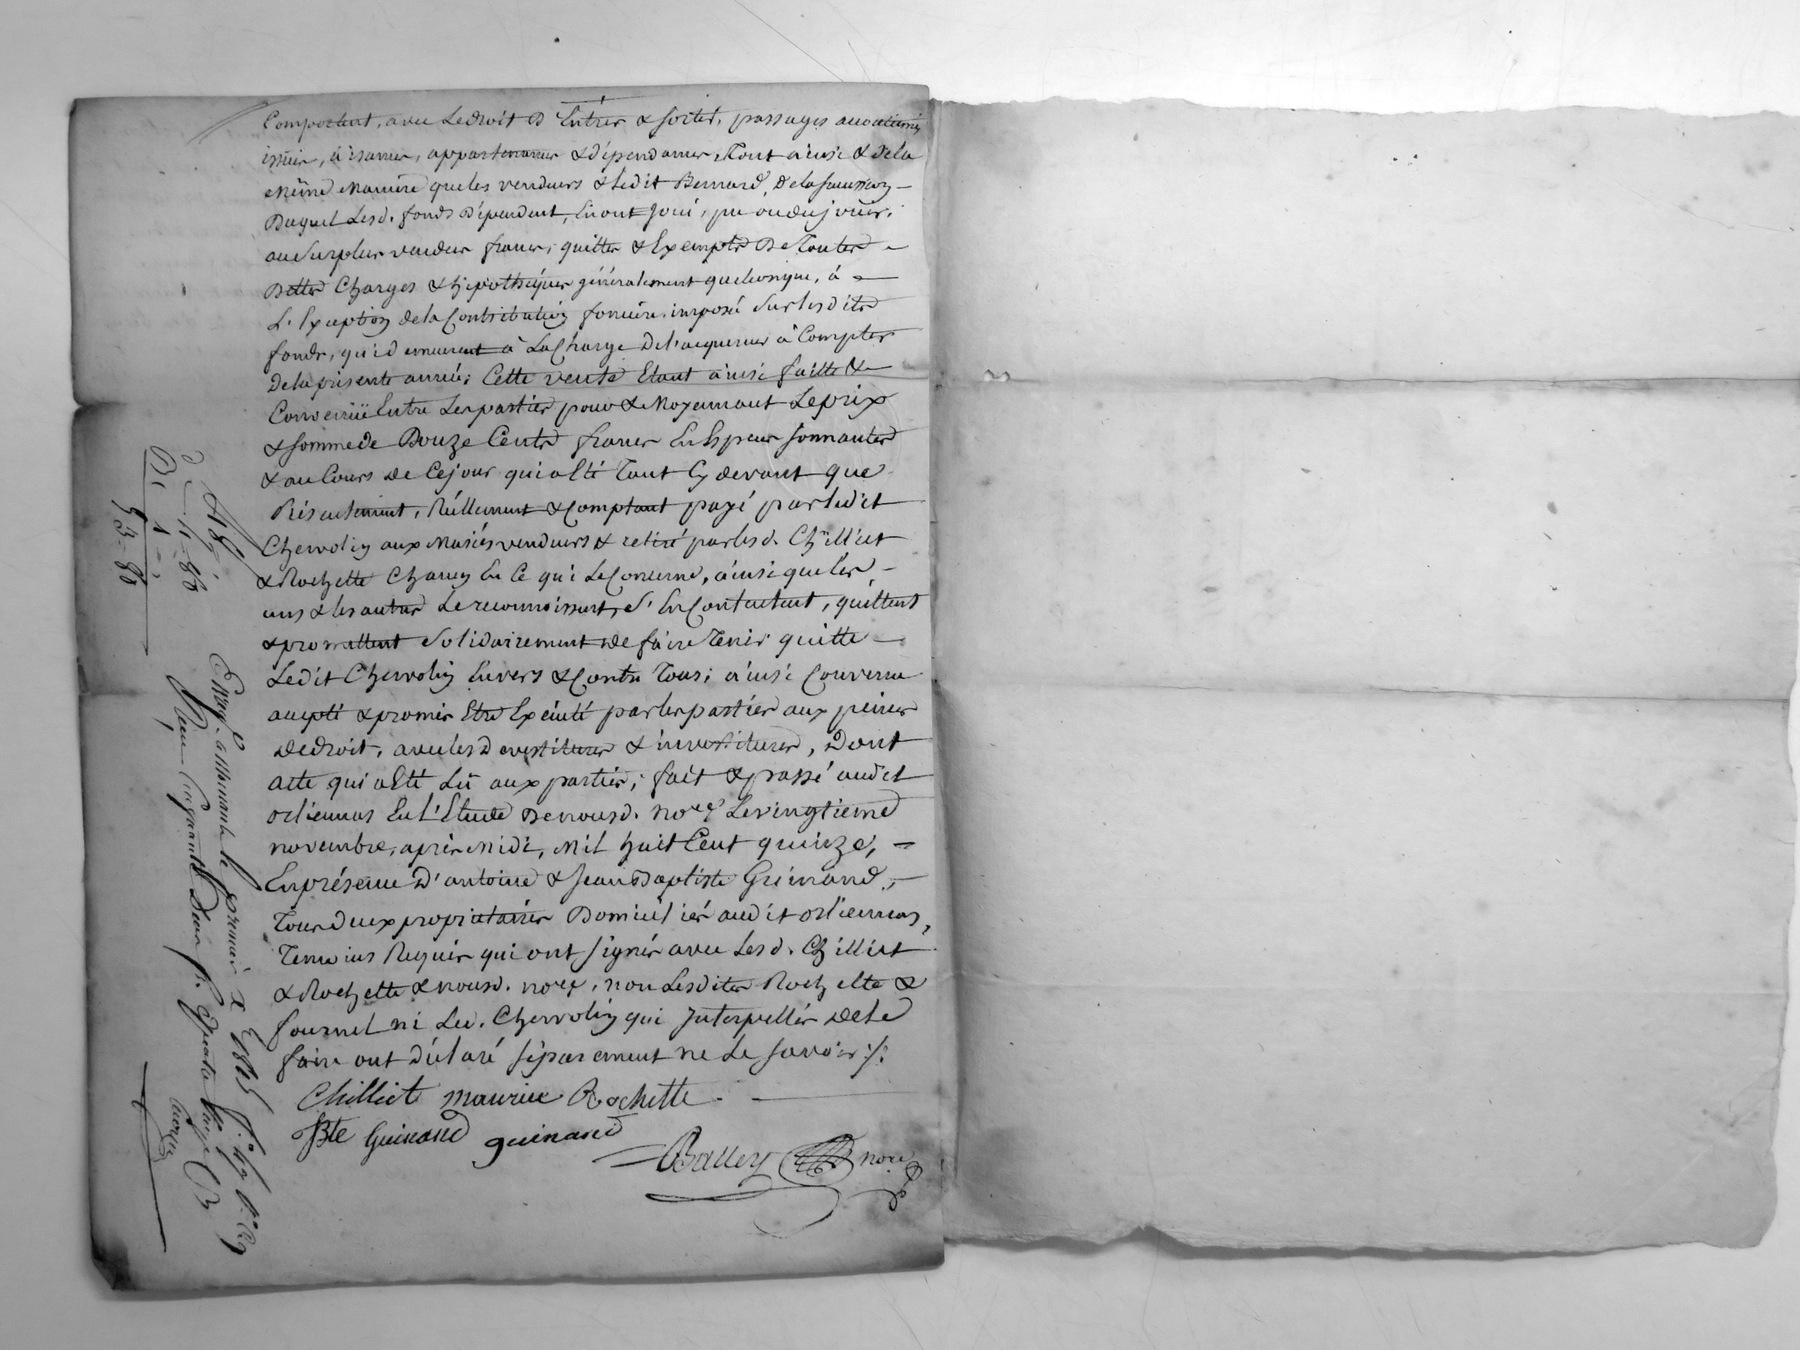 Comportent, avec Ledroit D'Entrer & sortir, passages accoutumés
issuës, aisances, appartenances & dépendances, Tout ainsi & dela
Même Maniere que les vendeurs & Ledit Bernard, Dela succession
Duquel Lesd. fonds Dépendent, En ont Joui, pu ou du jouir,
au Surplus vendus francs, quittes & Exempts De Toutes
Dettes Charges & hipothéques généralement quelconque, à
L'Exception dela Contribution fonciere imposé Sur lesdits
fonds, qui demeurent à La Charge De l'acquereur à Compter
De la présente année; Cette vente Etant ainsi faitte &
Convenüe Entre Les parties pour & Moyennant Le prix
& somme de Douze Cents francs En Especes sonnantes
& au Cours de Ce jour qui a Eté Tant Cy devant que
Présentement, Réellement & Comptant payé par ledit
Chervolin aux Mariés vendeurs & retiré par lesd. Chilliet
& Rochette Chacun En Ce qui Le Concerne, ainsi que les
uns & les autres Le reconnoissent, S'En Contentent, quittent
& promettent Solidairement de faire Tenir quitte
Ledit Chervolin Envers & Contre Tous; ainsi Convenu
accepté & promis Etre Exécuté par les parties aux peines
De droit, avec les Devestitures & investitures, Dont
acte qui a Eté Lû aux parties; fait & passé audit
orliennas En L'Etude De nousd. nore Le vingtieme
novembre, après Midi, Mil huit Cent quinze,
En présence D'antoine & Jean Baptiste Guinand,
Tous deux propriétaires Domiciliés audit orliennas,
Temoins Requis qui ont signés avec Lesd. Chilliet
& Rochette & nousd. nore, non Lesdites Rochette &
fournel ni Led. Chervolin qui Interpellés de Le
faire ont Déclaré séparement ne Le savoir ./.
Chilliet maurice Rochette
JBte Guinand guinand
Balley nore
Enreg. à Mornant le premier Xbre 1815
Reçu cinquante Deux f. quatre vingt